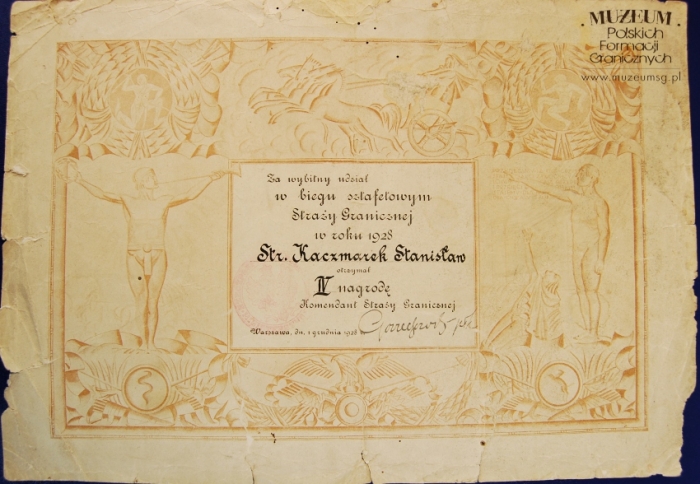 MUZEUM
Polskich
Formacji
Granicznych
www.muzeumsg.pl
Za wybitny udział
w biegu sztafetowym
Straży Granicznej
w roku 1928
Str. Kaczmarek Stanisław
otrzymał
IV nagrodę
Komendant Straży Granicznej
Warszawa, dn. 1 grudnia 1928 r.